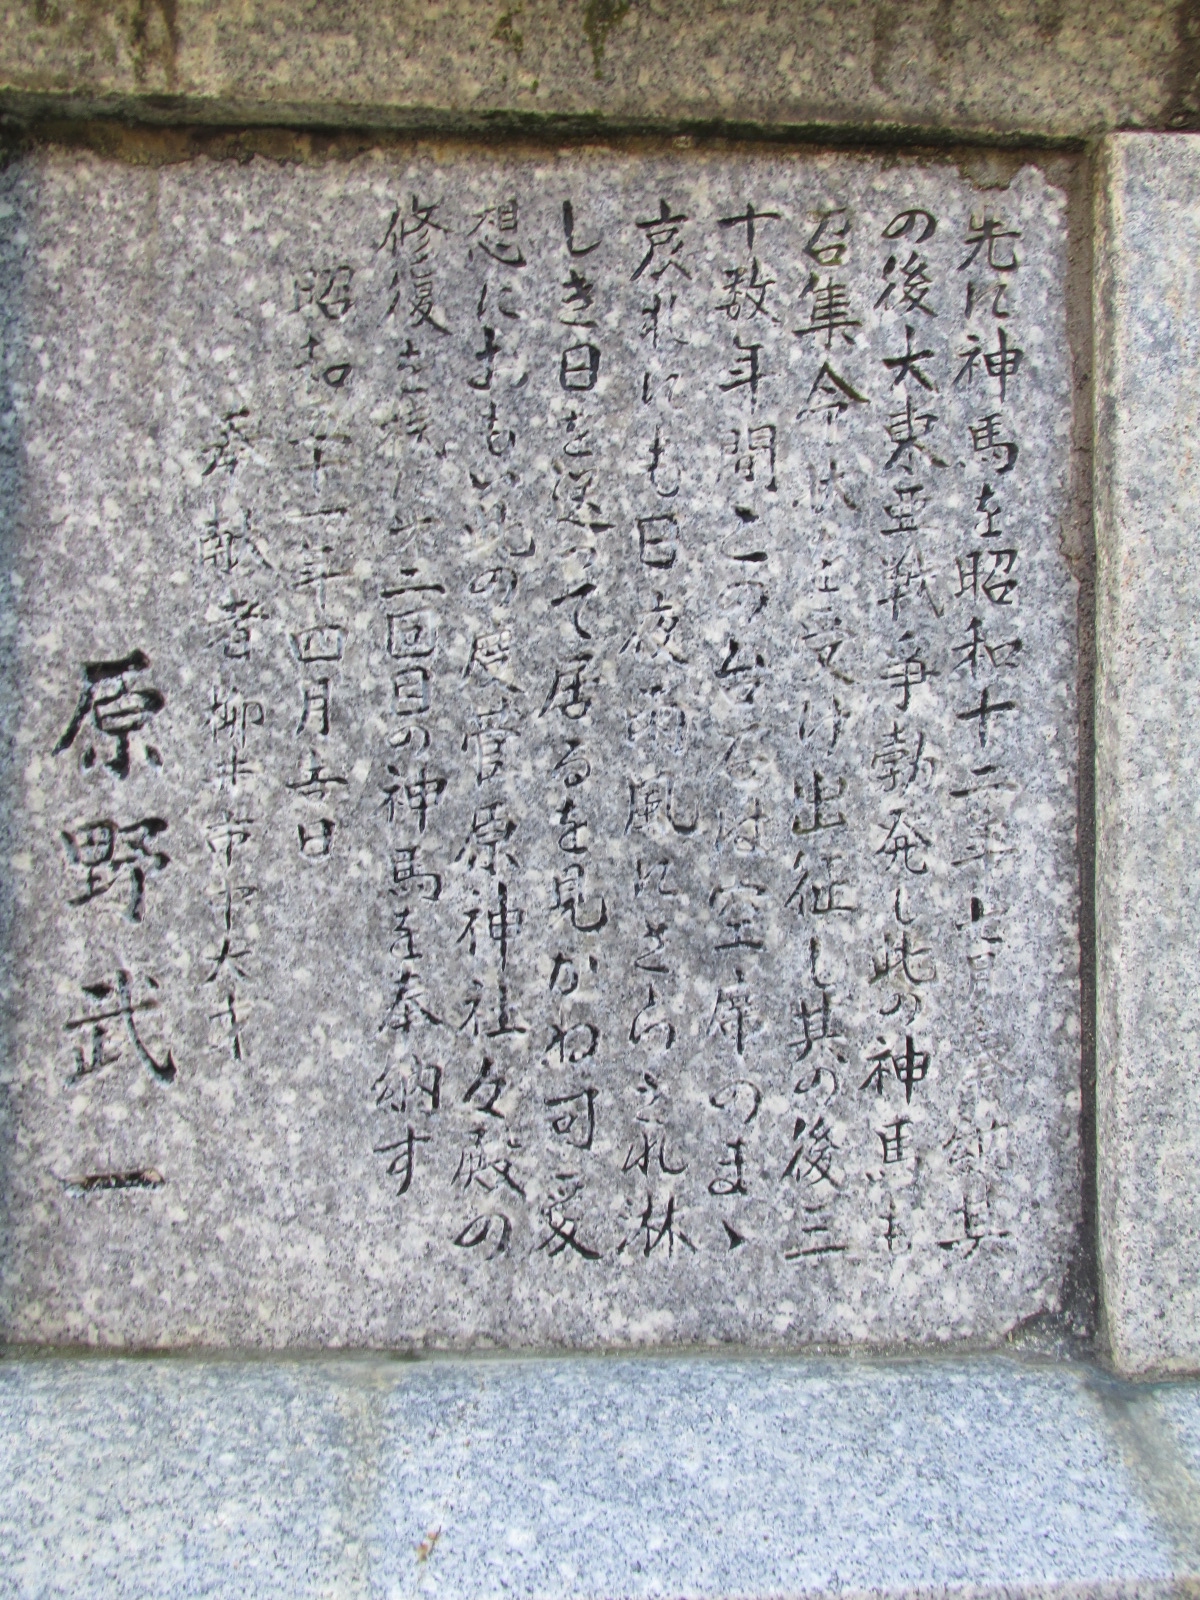 先に神馬を昭和十二年七月奉納其
の後大東亜戦争勃発し此の神馬も
召集令状を受け出征し其の後三
十数年間この台石は空席のまゝ
哀れにも日夜雨風にさらされ淋
しき日を送って居るを見かね可愛
想におもい此の度菅原神社々殿の
修復を機に第二回目の神馬を奉納す
昭和五十一年四月吉日
奉献者 柳井市中大才
原野武一